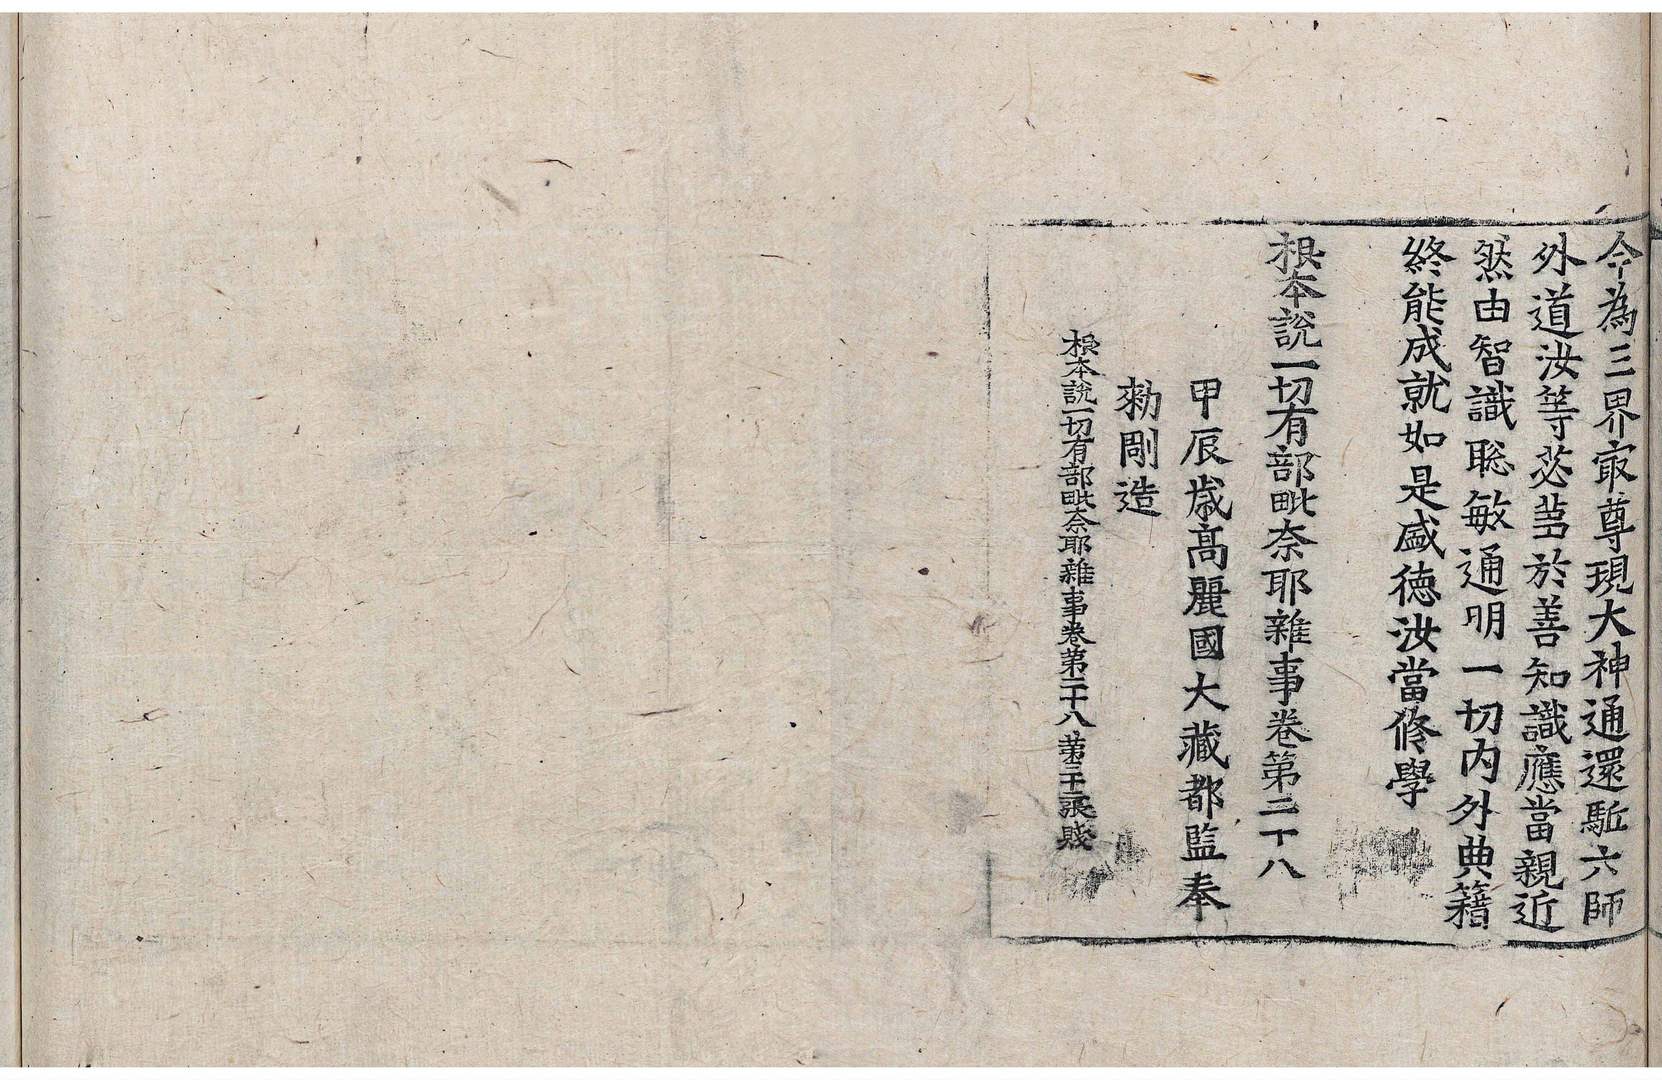 今為三界㝡尊現大神通還駈六師
外道汝等苾芻於善知識應當親近
然由智識聡敏通明一切内外典籍
終能成就如是盛徳汝當脩學
根本說一切有部毗奈耶雜事卷第二十八
甲辰歲髙麗國大藏都監奉
勑彫造
根本說一切有部毗奈耶雜事卷第二十八 第二十二張 賤